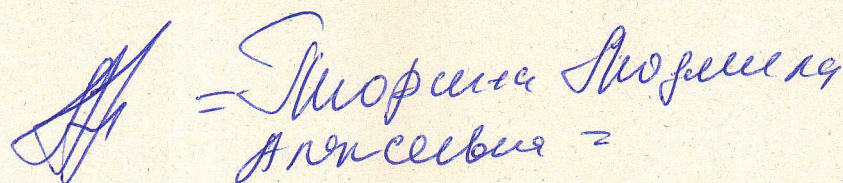 = Тюрина Людмила
Алексеевна =